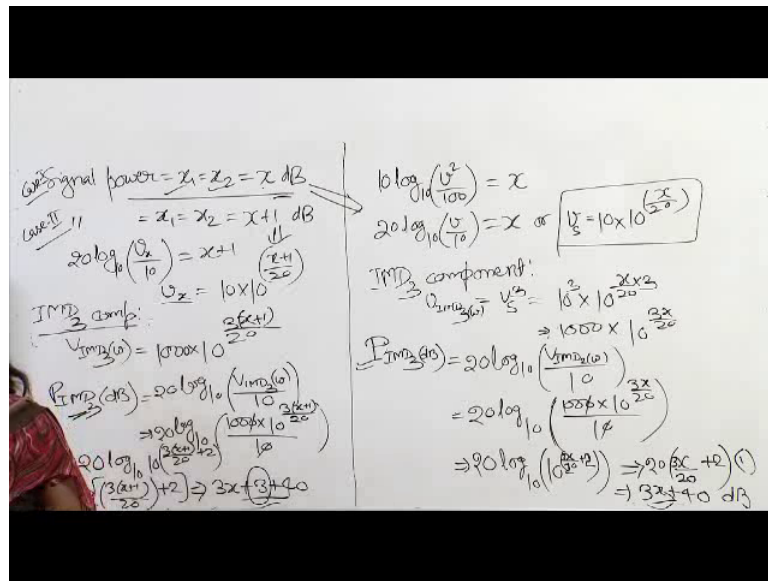 Case-I Signal power = x₁ = x₂ = x dB
Case-II " = x₁ = x₂ = x+1 dB
20 log₁₀ (vₓ/10) = x+1
vₓ = 10 × 10^((x+1)/20)
IMD₃ comp:
V_IMD₃(ω) = 1000 × 10^(3(x+1)/20)
P_IMD₃(dB) = 20 log₁₀ (V_IMD₃(ω)/10)
⇒ 20 log₁₀ (1000 × 10^(3(x+1)/20) / 10)
20 log₁₀ 10^(3(x+1)/20 + 2)
(3(x+1)/20) + 2] ⇒ 3x + 3 + 40
10 log₁₀ (v²/100) = x
20 log₁₀ (v/10) = x or v_s = 10 × 10^(x/20)
IMD₃ component:
v_IMD₃(ω) = v_s³ = 10³ × 10^(x×3/20)
⇒ 1000 × 10^(3x/20)
P_IMD₃(dB) = 20 log₁₀ (V_IMD₃(ω)/10)
= 20 log₁₀ (1000 × 10^(3x/20) / 10)
⇒ 20 log₁₀ (10^(3x/20 + 2)) ⇒ 20 (3x/20 + 2) (1)
⇒ 3x + 40 dB